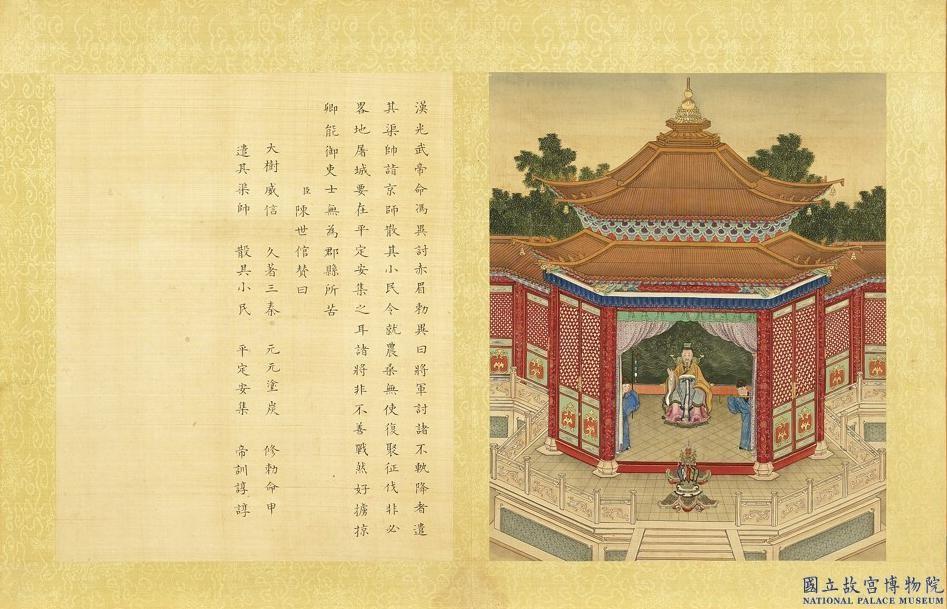 漢光武帝命馮異討赤眉勑異曰將軍討諸不軌降者遣
其渠帥詣京師散其小民令就農桑無使復聚征伐非必
畧地屠城要在平定安集之耳諸將非不善戰然好擄掠
卿能御吏士無為郡縣所苦
臣陳世倌贊曰
大樹威信 久著三秦 元元塗炭 修勑命甲
遣其渠帥 散其小民 平定安集 帝訓諄諄
國立故宮博物院
NATIONAL PALACE MUSEUM